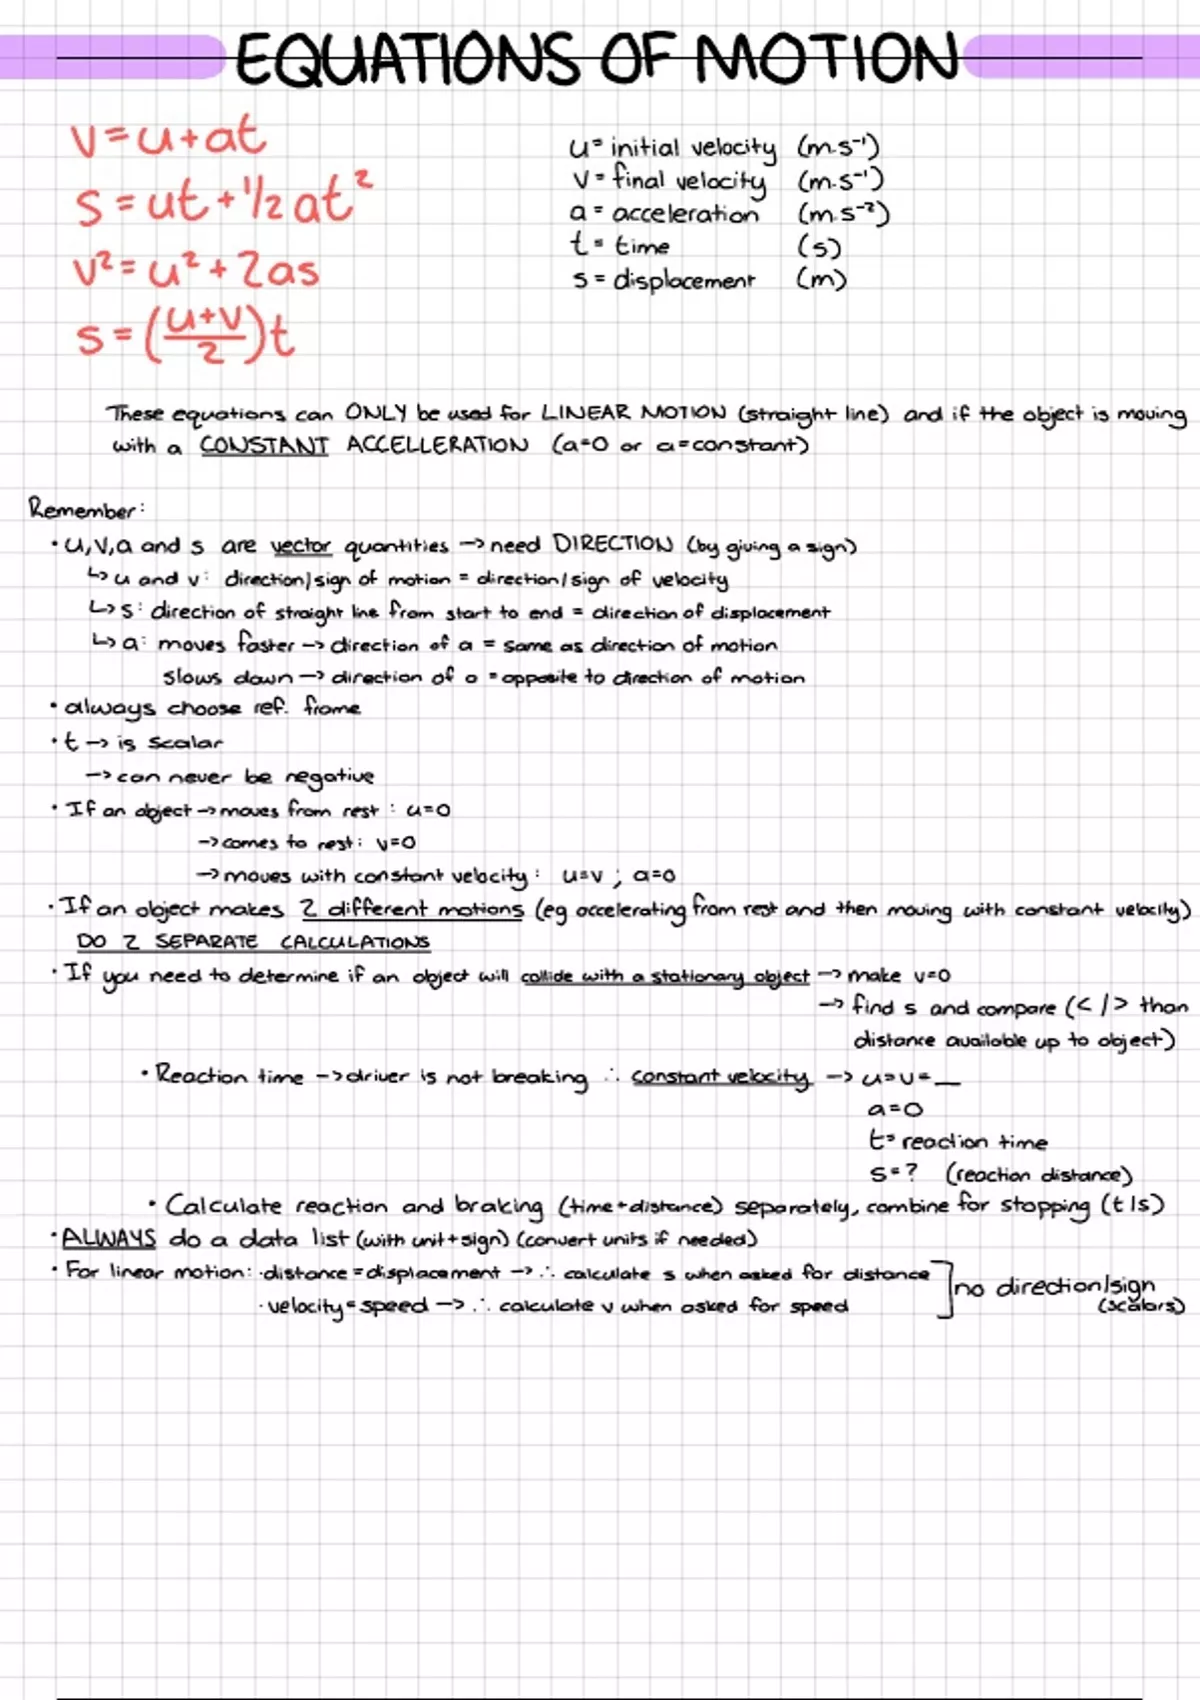 EQUATIONS OF MOTION
v=u+at
s=ut+1/2at²
v²=u²+2as
s=(u+v/2)t
u= initial velocity (m.s⁻¹)
v= final velocity (m.s⁻¹)
a= acceleration (m.s⁻²)
t= time (s)
s= displacement (m)
These equations can ONLY be used for LINEAR MOTION (straight line) and if the object is moving
with a CONSTANT ACCELLERATION (a=0 or a=constant)
Remember:
• u,v,a and s are vector quantities → need DIRECTION (by giving a sign)
↳ u and v: direction/sign of motion = direction/sign of velocity
↳ s: direction of straight line from start to end = direction of displacement
↳ a: moves faster → direction of a = same as direction of motion
slows down → direction of a = opposite to direction of motion
• always choose ref. frame
• t → is scalar
→ can never be negative
• If an object → moves from rest : u=0
→ comes to rest: v=0
→ moves with constant velocity: u=v ; a=0
• If an object makes 2 different motions (eg accelerating from rest and then moving with constant velocity)
DO 2 SEPARATE CALCULATIONS
• If you need to determine if an object will collide with a stationary object → make v=0
→ find s and compare (</> than
distance available up to object)
• Reaction time → driver is not breaking ∴ constant velocity → u=v=__
a=0
t= reaction time
s=? (reaction distance)
• Calculate reaction and braking (time+distance) separately, combine for stopping (t/s)
• ALWAYS do a data list (with unit+sign) (convert units if needed)
• For linear motion: • distance = displacement → ∴ calculate s when asked for distance
• velocity = speed → ∴ calculate v when asked for speed
no direction/sign
(scalars)